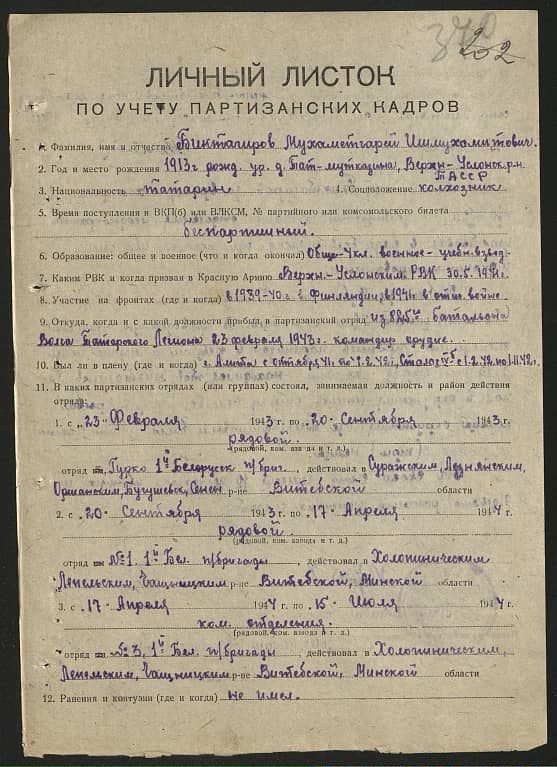 202
ЛИЧНЫЙ ЛИСТОК
ПО УЧЕТУ ПАРТИЗАНСКИХ КАДРОВ
1. Фамилия, имя и отчество Биктагиров Мухаметгарей Ишмухамитович.
2. Год и место рождения 1913 г рожд. ур. д. Тат-мутказина, Верхн-Услонск. р.н.
ТАССР
3. Национальность татарин 4. Соцположение колхозник.
5. Время поступления в ВКП(б) или ВЛКСМ, № партийного или комсомольского билета
беспартийный.
6. Образование: общее и военное (что и когда окончил) Обще-4кл. военное-учебн. взвод.
7. Каким РВК и когда призван в Красную Армию Верхн.-Услонским РВК 30.5.1941г.
8. Участие на фронтах (где и когда) в 1939-40 г. в Финляндии, в 1941г. в отеч. войне.
9. Откуда, когда и с какой должности прибыл в партизанский отряд из 825го батальона
Волго Татарского Легиона 23 февраля 1943г. командир орудие.
10. Был ли в плену (где и когда) г. Алита с октября 41г. по 1.2.42г., с 1.2.42. по 1.11.42г.
11. В каких партизанских отрядах (или группах) состоял, занимаемая должность и район действия
отряда:
1. с „23" Февраля 1943 г. по „20" Сентября 1943 г.
рядовой.
(рядовой, ком. взвода и т. д.)
отряд Гурко 1й Белоруск п/бриг., действовал в Суражским, Лезнянским,
Оршанским, Богушевск, Сенен. р-не Витебской области
2. с „20" Сентября 1943 г. по „17" Апреля 1944 г.
рядовой.
(рядовой, ком. взвода и т. д.)
отряд №1. 1й Бел. п/бригады, действовал в Холопиническим
Лепельским, Чашницким р-не Витебской, Минской области
3. с „17" Апреля 1944 г. по „15" Июля 1944 г.
ком. отделения.
(рядовой, ком. взвода и т. д.)
отряд №3, 1й Бел. п/бригады, действовал в Холопиническим,
Лепельским, Чашницким р-не Витебской, Минской области
12. Ранения и контузии (где и когда) не имел.